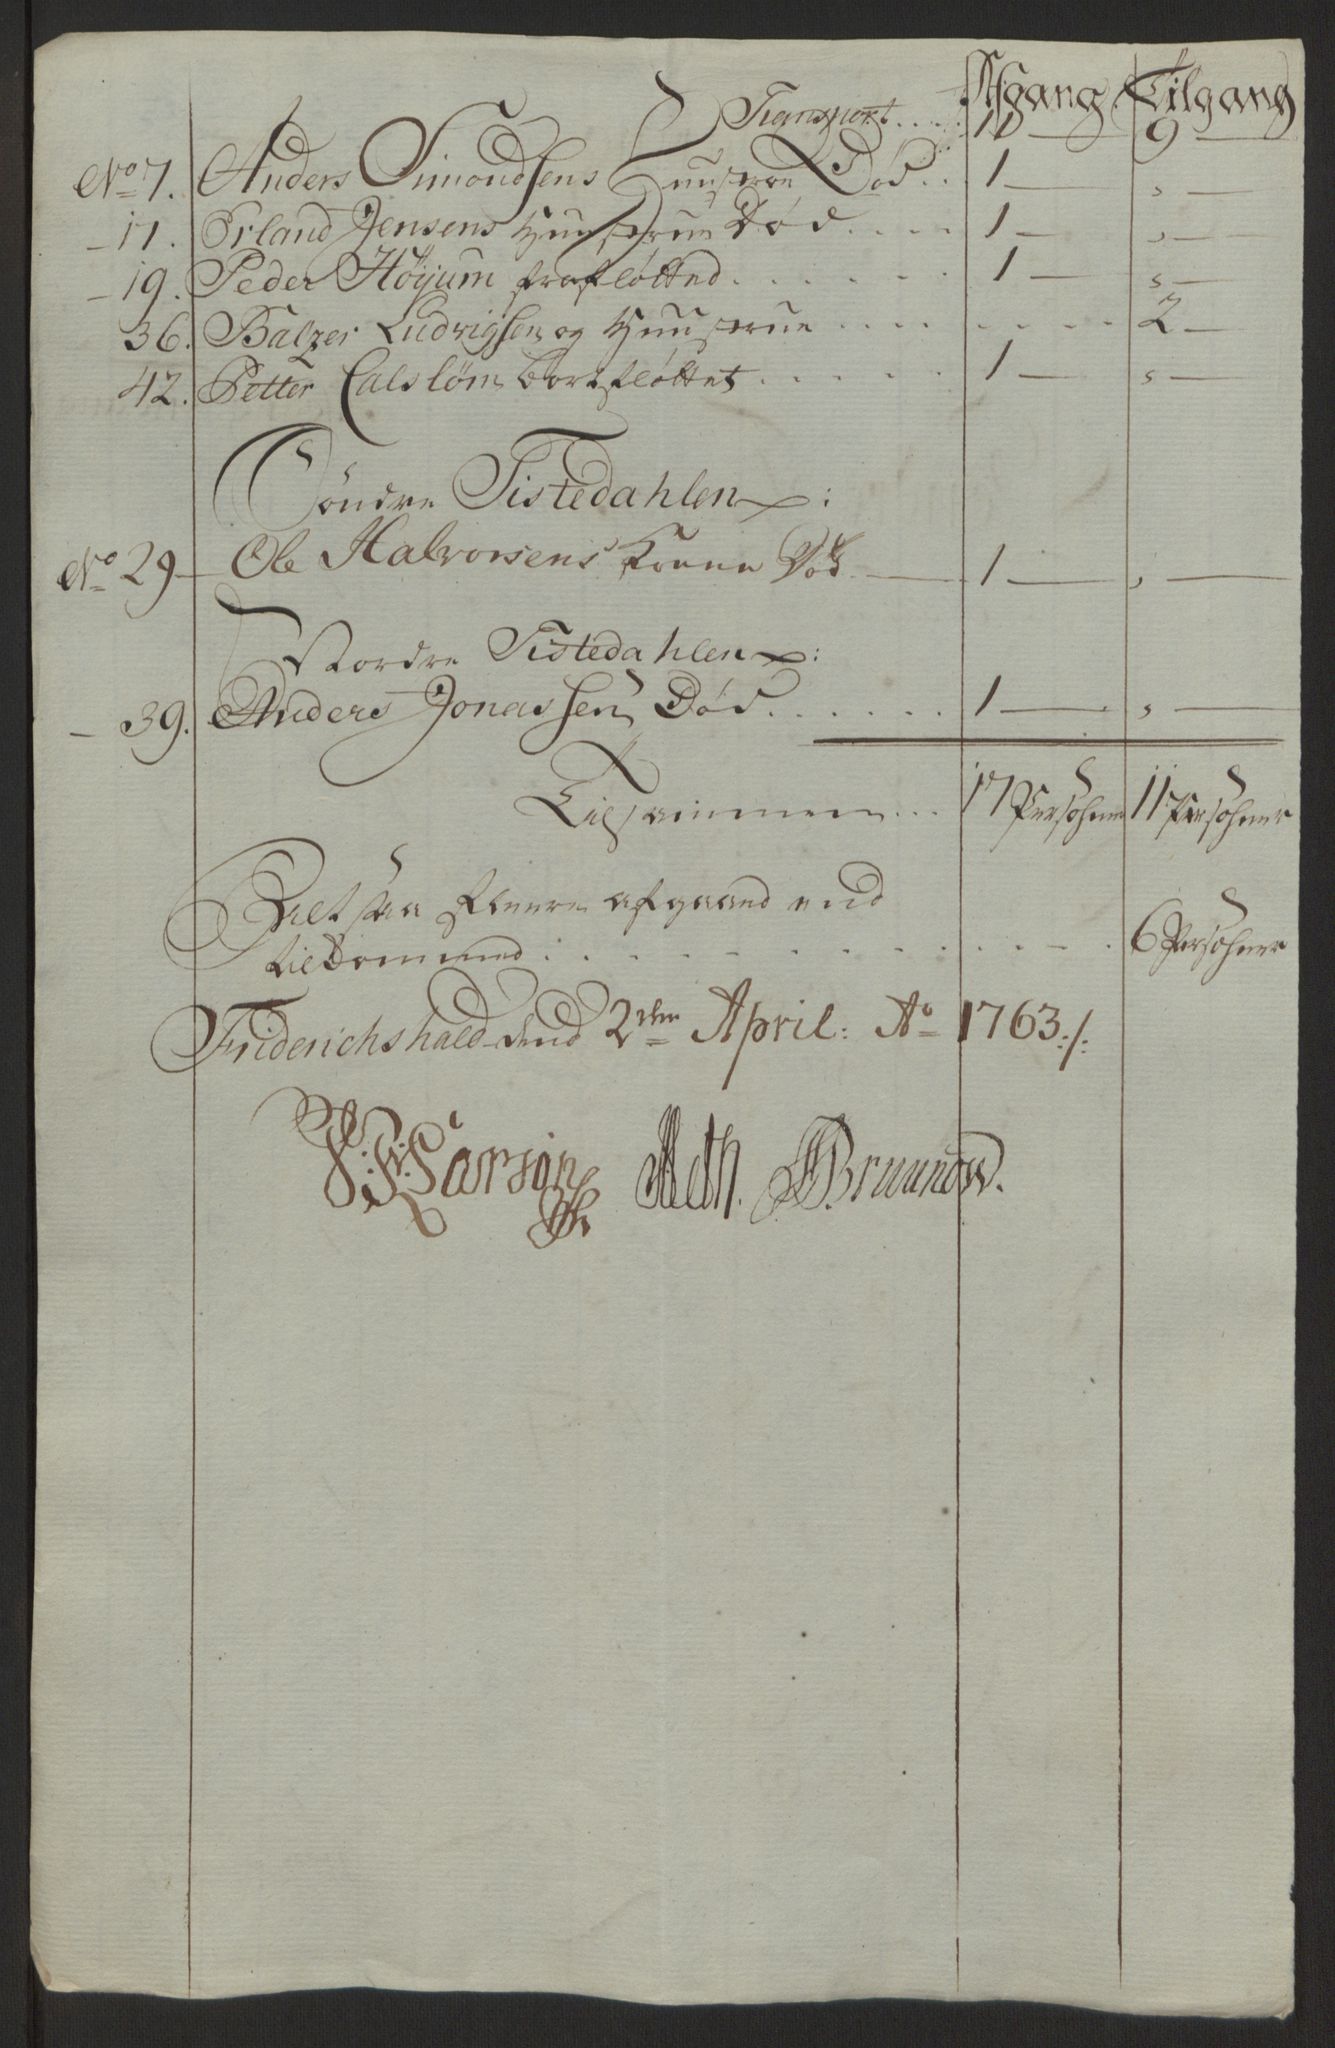 Afgang Tilgang
Transport..... 11 — 9 —
No 7. Anders Simondsens Huusfrue Død.. 1 — " —
— 11. Erland Jensens Huusfrue Død.... 1 — " —
— 19. Peder Höyum frafløtted...... 1 — " —
36. Balzer Ludvigsen og Huusfrue ........ 2 —
42. Petter Calsløm bortfløttet...... 1 — " —
Söndre Tistedahlen:
No 29 — Ole Halvorsens Kone Død. — 1 — " —
Nordre Tistedahlen:
— 39. Anders Jonassen Død...... 1 — " —
Tilsammen... 17 Persohner 11 Persohner
Altsaa fleere afgaaed end
tilkommed: .......... 6 Persohner
Friderichshald dend 2den April: Ao 1763./.
Larson Meth. Bruunow.